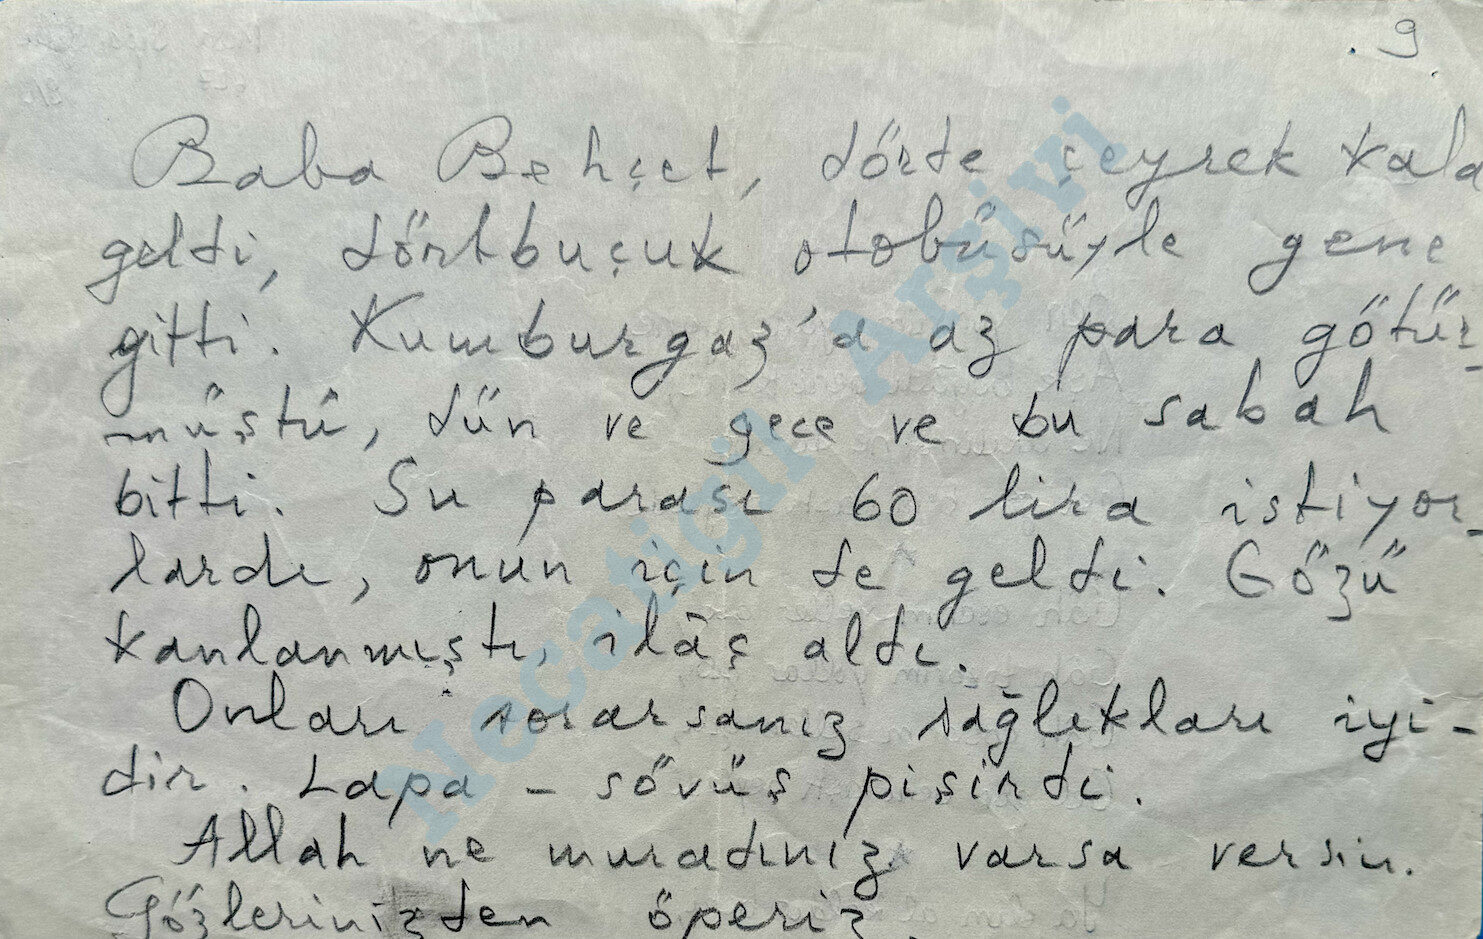 9
Baba Behçet, dörte çeyrek kala
geldi, dörtbuçuk otobüsüyle gene
gitti. Kumburgaz'a az para götür-
müştü, dün ve gece ve bu sabah
bitti. Su parası 60 lira istiyor-
lardı, onun için de geldi. Gözü
kanlanmıştı, ilâç aldı.
Onları sorarsanız sağlıkları iyi-
dir. Lapa - sövüş pişirdi.
Allah ne muradınız varsa versin.
Gözlerinizden öperiz.
Necatigil Arşivi